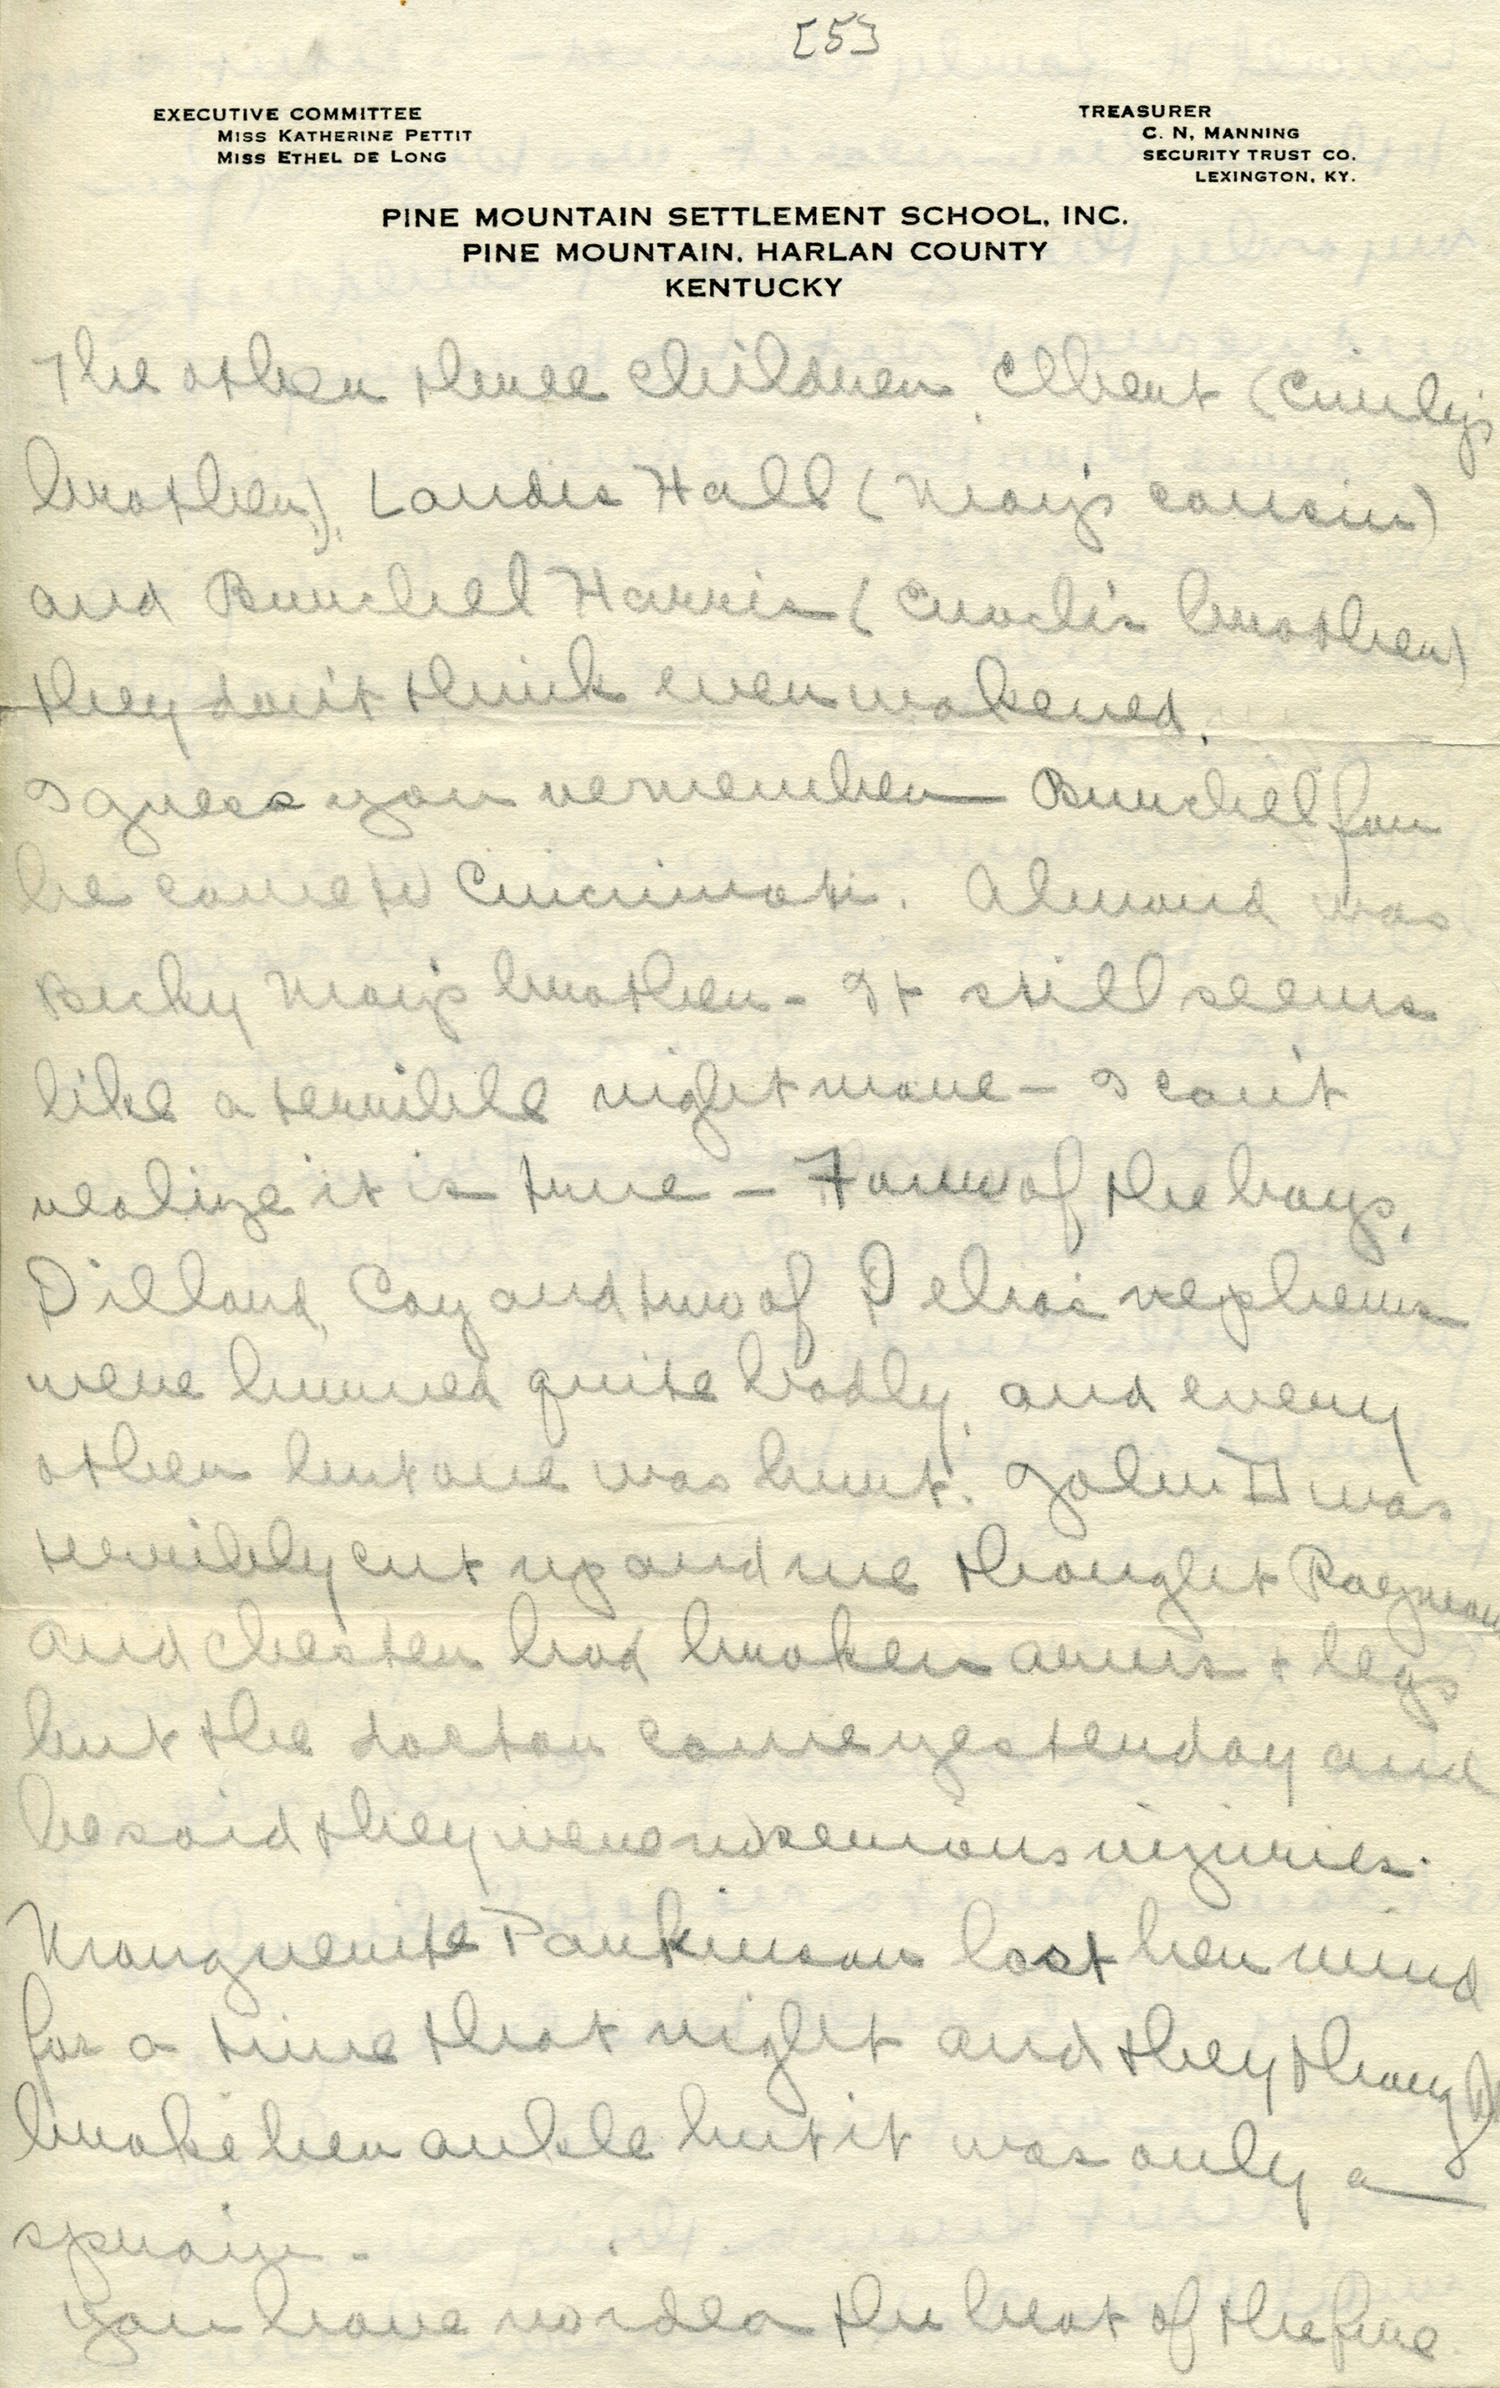 [5]
EXECUTIVE COMMITTEE
MISS KATHERINE PETTIT
MISS ETHEL DE LONG
TREASURER
C. N. MANNING
SECURITY TRUST CO.
LEXINGTON, KY.
PINE MOUNTAIN SETTLEMENT SCHOOL, INC.
PINE MOUNTAIN, HARLAN COUNTY
KENTUCKY
The other three children, Elbert (Emily's
brother), Landis Hall (May's cousin)
and Burchel Harris (Enoch's brother)
they don't think even wakened.
I guess you remember Burchel for
he came to Cincinnati. Almond was
Becky May's brother - It still seems
like a terrible night mare - I can't
realize it is true - Four of the boys,
Dillard, Coy and two of Delia's nephews
were burned quite badly, and every
other but one was hurt. John D was
terribly cut up and we thought
and Chester had broken arms + legs
but the doctor came yesterday and
he said they were no serious injuries.
Marguerite Parkinson lost her mind
for a time that night and they thought
broke her ankle but it was only a
sprain -
You have no idea the heat of the fire